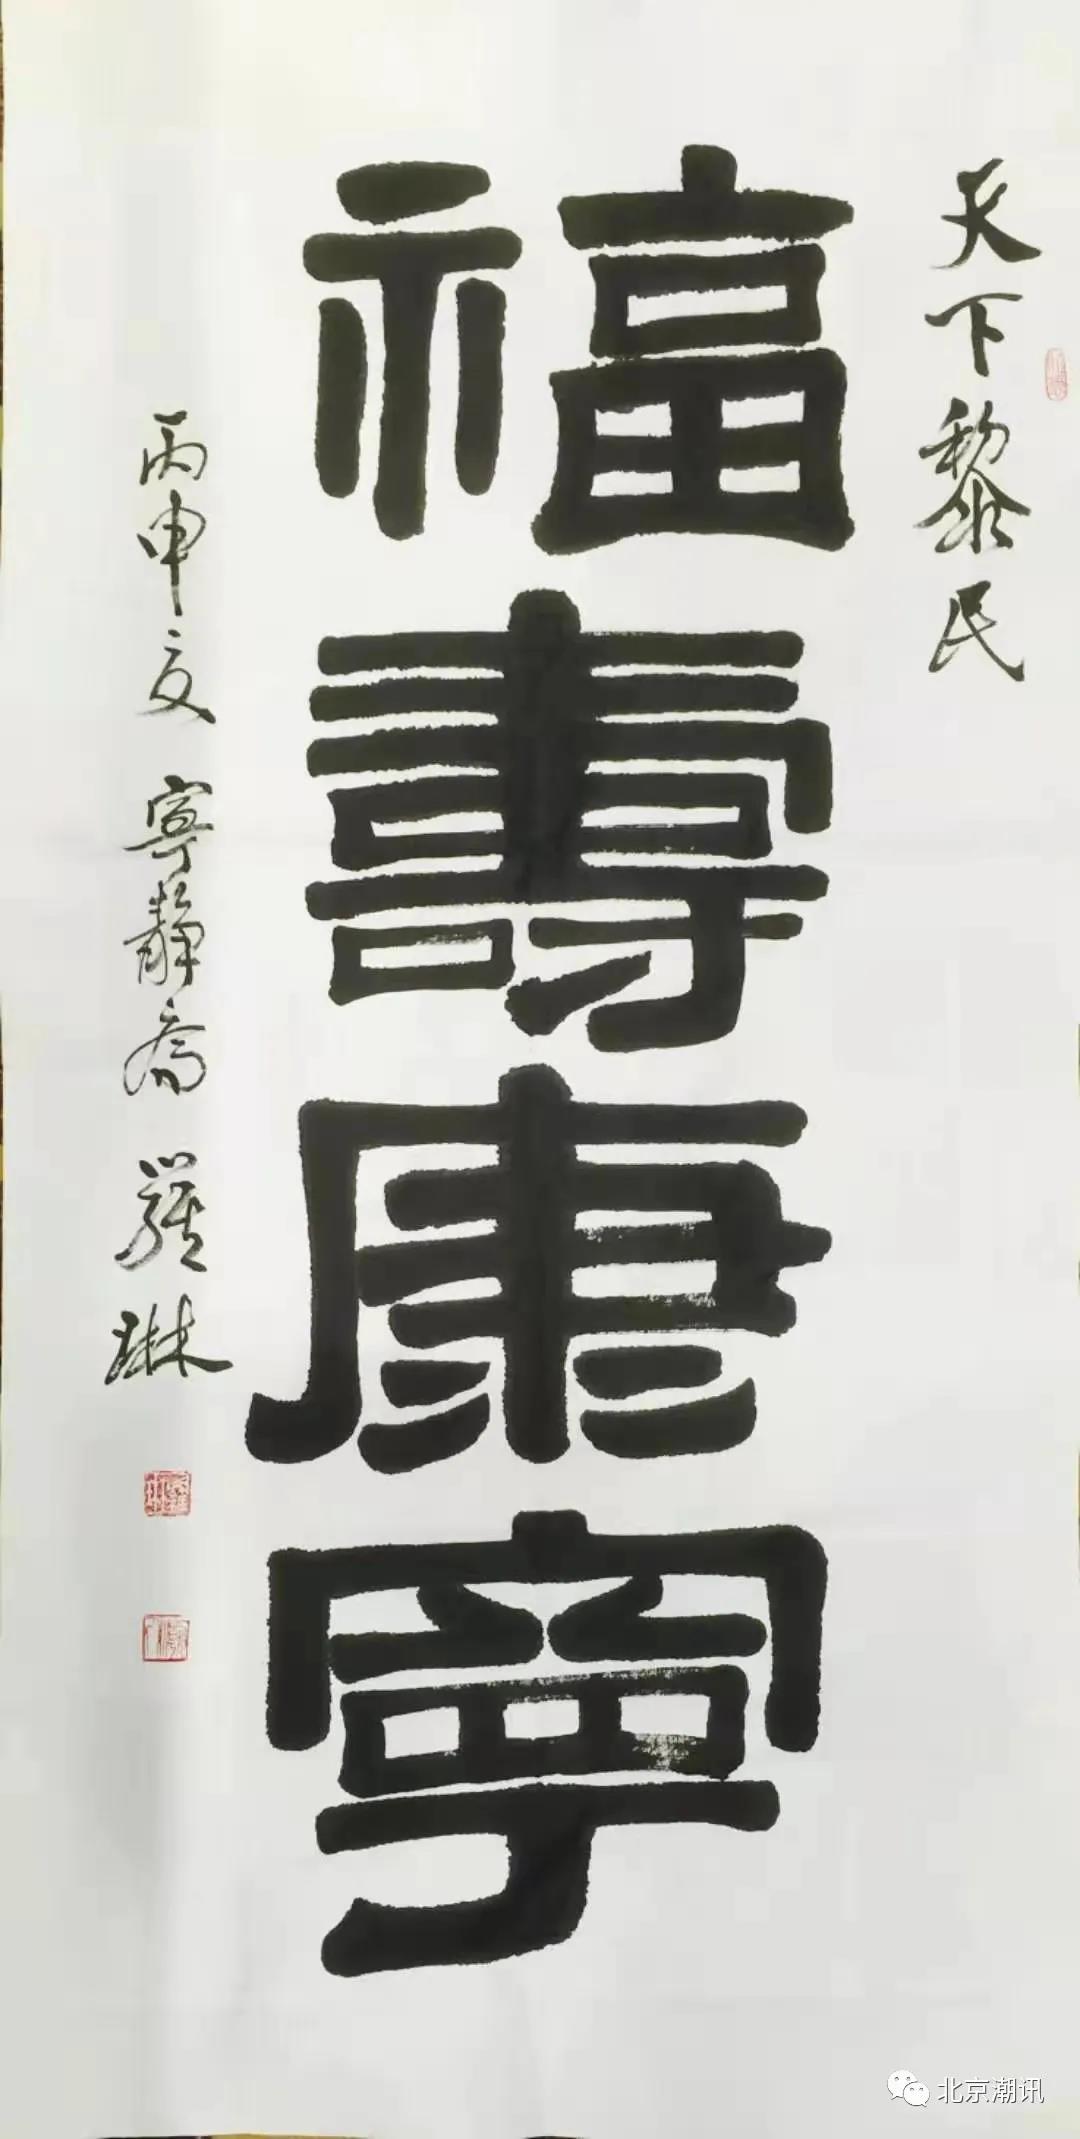 天下黎民
福壽康寧
丙申夏 寧靜齋 羅琳
北京潮讯